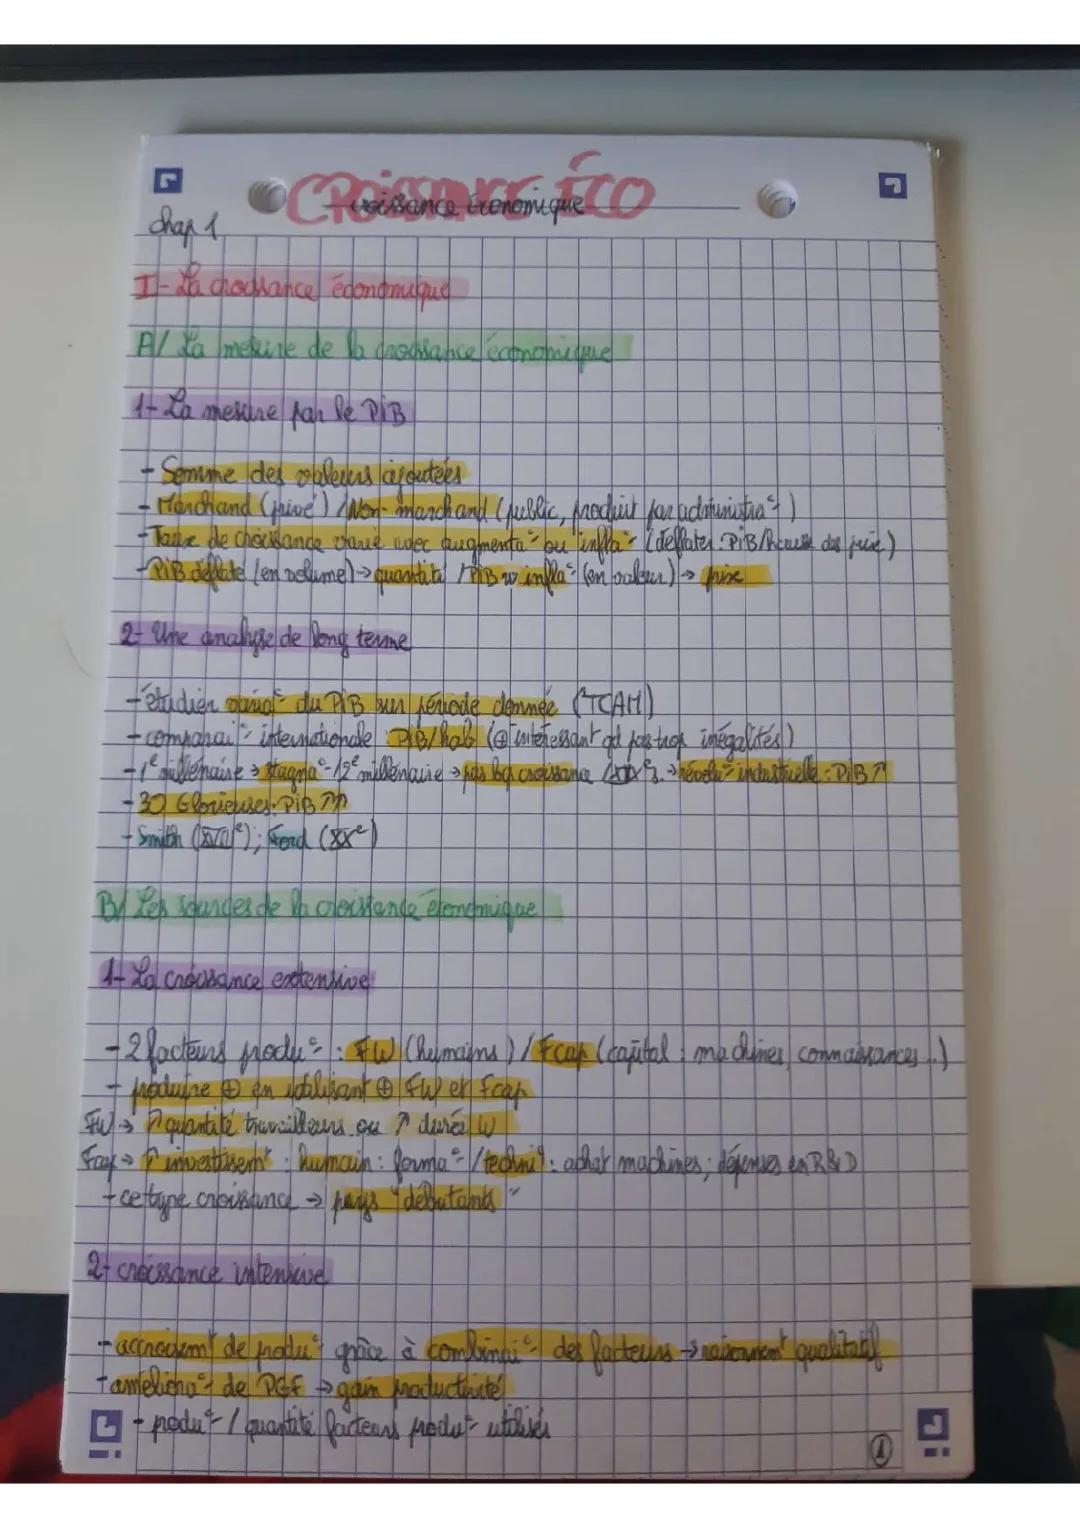 CROISSANCE ÉCO
Croissance Économique
Chap 1
I- La croissance économique
A/ La mesure de la croissance économique
1- La mesure par le PiB
- Somme des valeurs ajoutées
- Marchand (privé) / Non-marchand (public, produit par administra°)
- Taux de croissance varie avec augmenta° ou infla° (déflater: PiB/hausse des prix)
- PiB déflaté (en volume) → quantité / PiB infla° (en valeur) → prix
2- Une analyse de long terme
- étudier varia° du PiB sur période donnée (TCAM)
- comparai° internationale PiB/hab (⊕ intéressant qd pas trop inégalités)
- 1e millénaire → stagna° - 2e millénaire → pas bcp croissance → révolu° industrielle: PiB ↗
- 30 Glorieuses: PiB ↗↗
- Smith ; Ford (XXe)
B/ Les sources de la croissance économique
1- La croissance extensive
- 2 facteurs produ° : FW (humains) / Fcap (capital : machines, connaissances...)
- produire ⊕ en utilisant ⊕ FW et Fcap
FW → ↗ quantité travailleurs ou ↗ durée W
Fcap → ↗ investissemt : humain : forma° / techni : achat machines ; dépenses en R&D
- ce type croissance → pays "débutants"
2- croissance intensive
- accroissemt de produ° grâce à combinai° des facteurs → raisonnemt qualitatif
- améliora° de PGF → gain productivité
- produ° / quantité facteurs produ° utilisés
1